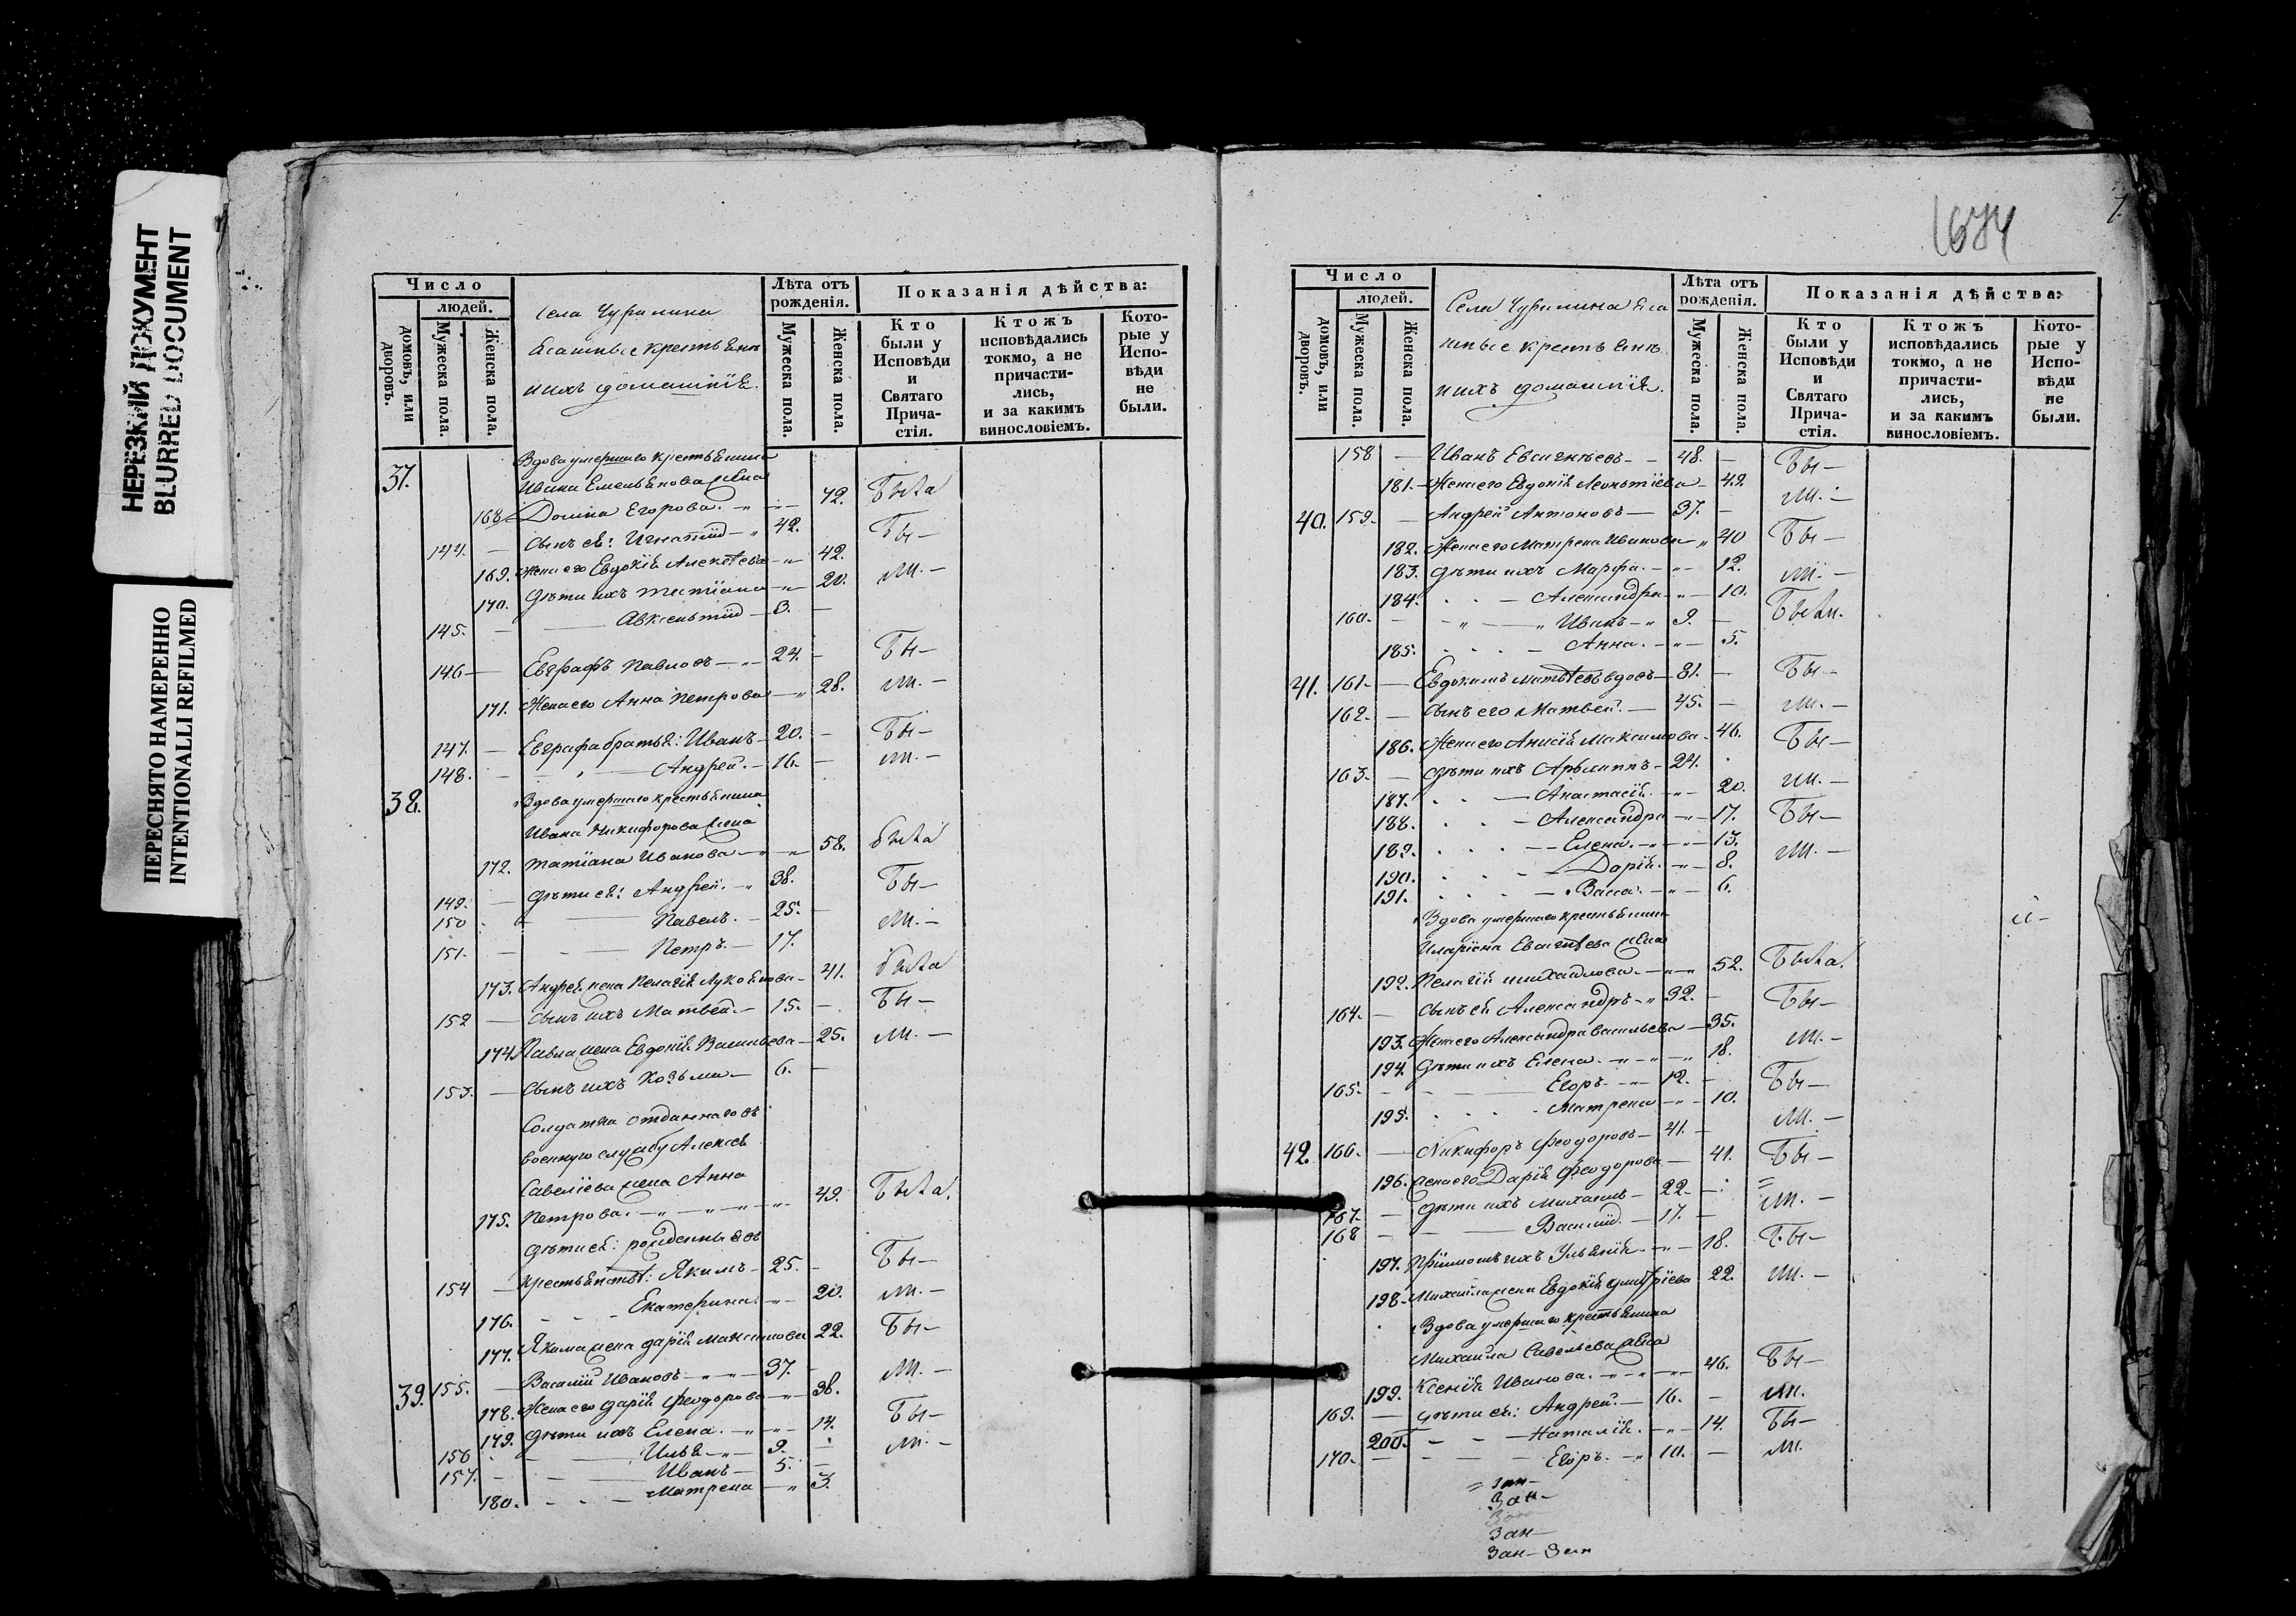 НЕРЕЗКИЙ ДОКУМЕНТ
BLURRED DOCUMENT
ПЕРЕСНЯТО НАМЕРЕННО
INTENTIONALLI REFILMED
Число
людей.
домовъ, или дворовъ.
Мужеска пола.
Женска пола.
Села Чурилина
Ясашные крестьяне
и ихъ домашнія.
Лѣта отъ рожденія.
Мужеска пола.
Женска пола.
Показанія дѣйства:
Кто были у Исповѣди и Святаго Прича-стія.
Ктожъ исповѣдались токмо, а не причасти-лись, и за какимъ винословіемъ.
Кото-рые у Испо-вѣди не были.
37. Вдова умершаго крестьянина
Ивана Емельянова жена
168 Домна Егорова. 72. Была
144. — Сынъ ея: Игнатій — 42. Бы—
169. Жена его Евдокія Алексѣева — 42.
170. Дѣти ихъ Татіана — 20. ли. —
145. — Авксентій — 3. —
146 — Евграфъ Павловъ — 24. — Бы—
171. Жена его Анна Петрова — 28. ли. —
147. — Евграфа братья: Иванъ — 20. — Бы—
148. — Андрей. — 16. — ли. —
38. Вдова умершаго крестьянина
Ивана Никифорова жена
172. Татіана Иванова — 58. была
149. — Дѣти ея: Андрей. — 38. Бы—
150 Павелъ. — 25. — ли. —
151. — Петръ. — 17.
173. Андрея жена Пелагія Лукоянова — 41. была
152 — Сынъ ихъ Матвей. — 15. — Бы—
174. Павла жена Евдокія Васильева — 25. ли. —
153. — Сынъ ихъ Козьма — 6. —
Солдатка отданнаго въ
военную службу Алексѣя
Савеліева жена Анна
175. Петрова. — 49. Была.
Дѣти ея: рожденныя въ
154 — крестьянствѣ: Якимъ — 25. — Бы—
176. Екатерина. — 20. ли. —
177. Якима жена Дарія Максимова 22. Бы—
39. 155. — Василій Ивановъ — 37. — ли. —
178. Жена его Дарія Феодорова — 38.
179. Дѣти ихъ Елена. — 14. Бы—
156 Илья — 9. — ли. —
157. Иванъ — 5. —
180. Матрена — 3.
1674
7.
Число
людей.
домовъ, или дворовъ.
Мужеска пола.
Женска пола.
Села Чурилина Яса
шные крестьяне
и ихъ домашнія.
Лѣта отъ рожденія.
Мужеска пола.
Женска пола.
Показанія дѣйства:
Кто были у Исповѣди и Святаго Прича-стія.
Ктожъ исповѣдались токмо, а не причасти-лись, и за какимъ винословіемъ.
Кото-рые у Испо-вѣди не были.
158 — Иванъ Евсигнѣевъ — 48. — Бы—
181. Жена его Евдокія Леонтіева — 49. ли. —
40. 159. — Андрей Антоновъ — 37. —
182. Жена его Матрена Иванова — 40 Бы—
183. Дѣти ихъ Марфа. — 12. ли. —
184. — Александра — 10.
160. — Иванъ — 9. — Были.
185. — Анна. — 5.
41. 161. — Евдокимъ Матвѣевъ вдовъ — 81. — Бы—
162. — Сынъ его Матвей. — 45. — ли. —
186. Жена его Анисія Максимова — 46. Бы—
163. — Дѣти ихъ — 24.
187. — Анастасія. — 20. ли. —
188. — Александра — 17. Бы—
189. — Елена. — 13.
190. — Дарія. — 8. ли. —
191. — Васса. — 6.
Вдова умершаго крестьянина
Иларіона Евсигнѣева жена
192. Пелагія Михайлова. — 52. Была.
164. — Сынъ ея Александръ — 32. — Бы—
193. Жена его Александра Васильева — 35. ли. —
194. Дѣти ихъ Елена. — 18.
165. — Егоръ. — 12. — Бы—
195. Матрена — 10. ли. —
42. 166. — Никифоръ Феодоровъ — 41. —
196. Жена его Дарія Феодорова — 41. Бы—
167. — Дѣти ихъ Михаилъ — 22. — ли. —
168 — Василій. — 17. —
197. Пріимышъ ихъ Ульянія. — 18. Бы—
198. Михаила жена Евдокія Дмитріева 22. ли. —
Вдова умершаго крестьянина
Михаила Савельева жена
199. Ксенія Иванова. — 46. Бы—
169. — Дѣти ея: Андрей. — 16. — ли.
200. — Наталія. — 14. Бы—
170. — Егоръ. — 10. — ли.
Зан—
Зан—
Зан—
Зан— Зан